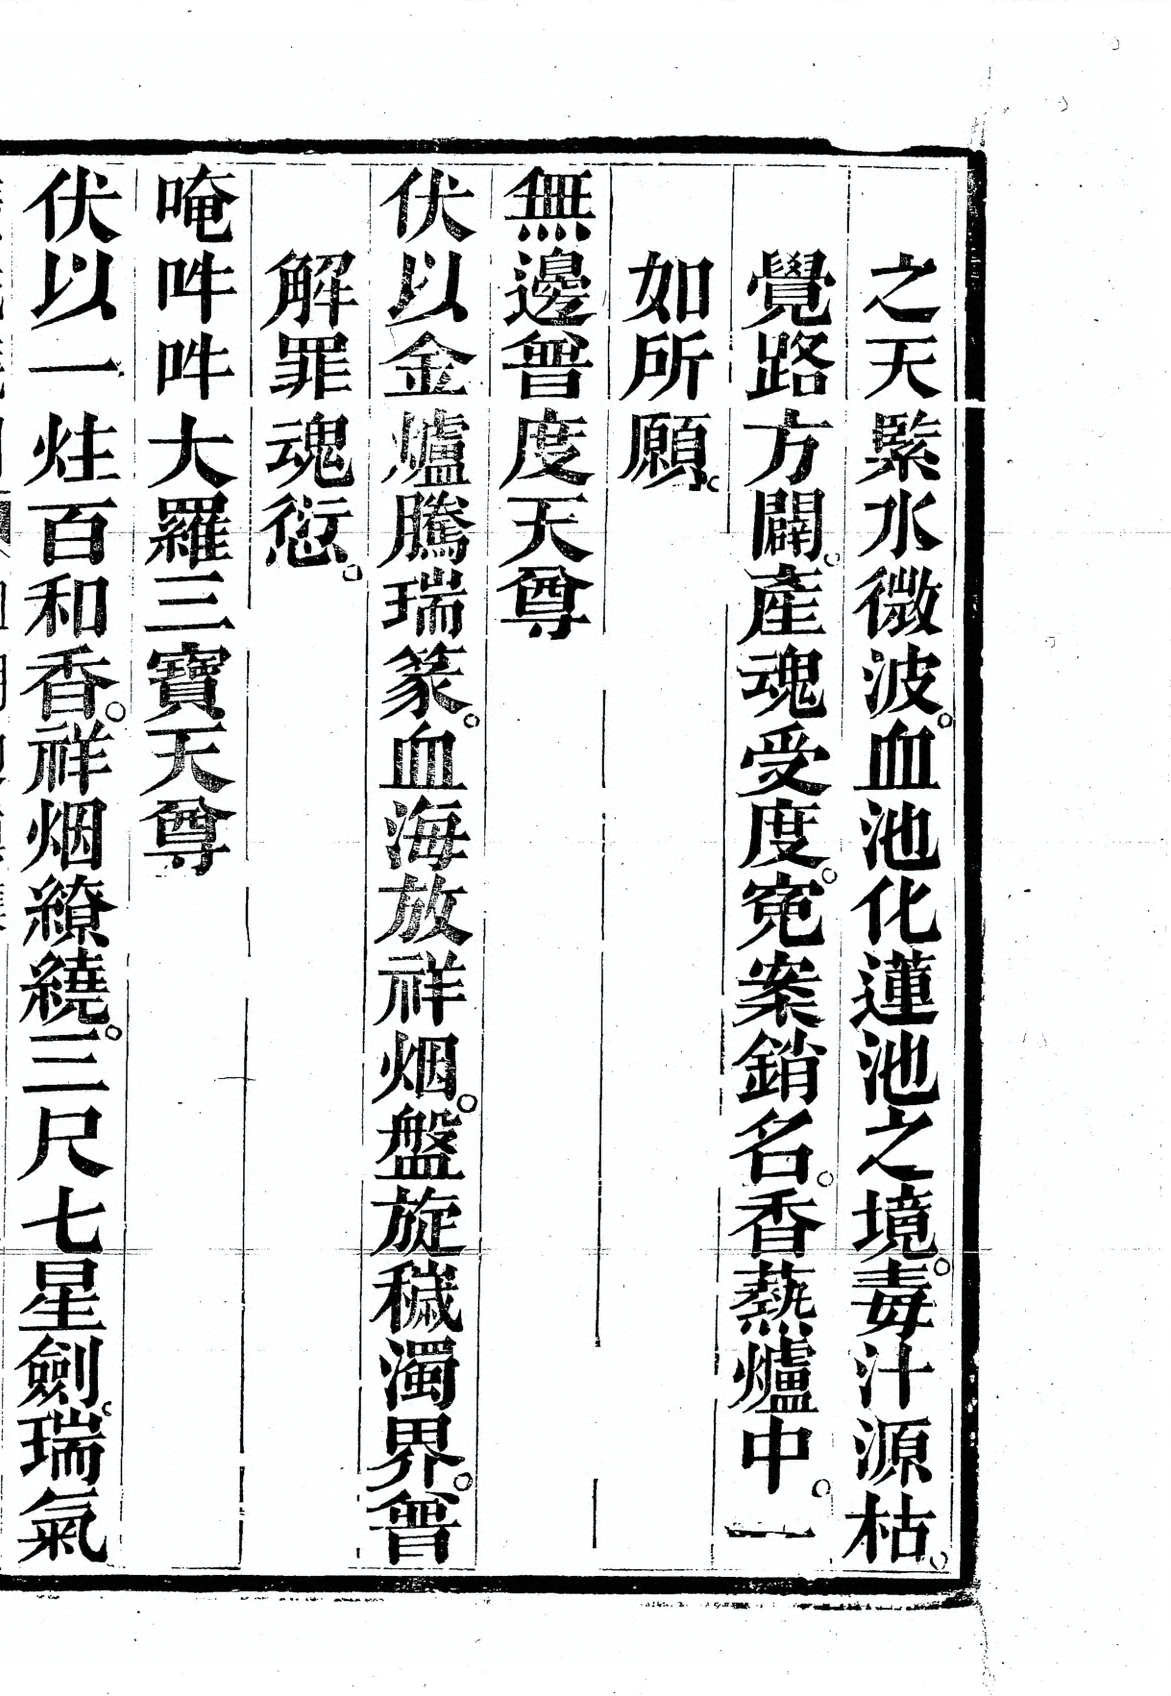 之天緊水微波。血池化蓮池之境。毒汁源枯。
覺路方闢。產魂受度。寃案銷名。香爇爐中。一
如所願。
無邊普度天尊
伏以金爐騰瑞篆。血海放祥烟。盤旋穢濁界。普
解罪魂愆。
唵吽吽大羅三寶天尊
伏以一炷百和香。祥烟繚繞。三尺七星劍。瑞氣